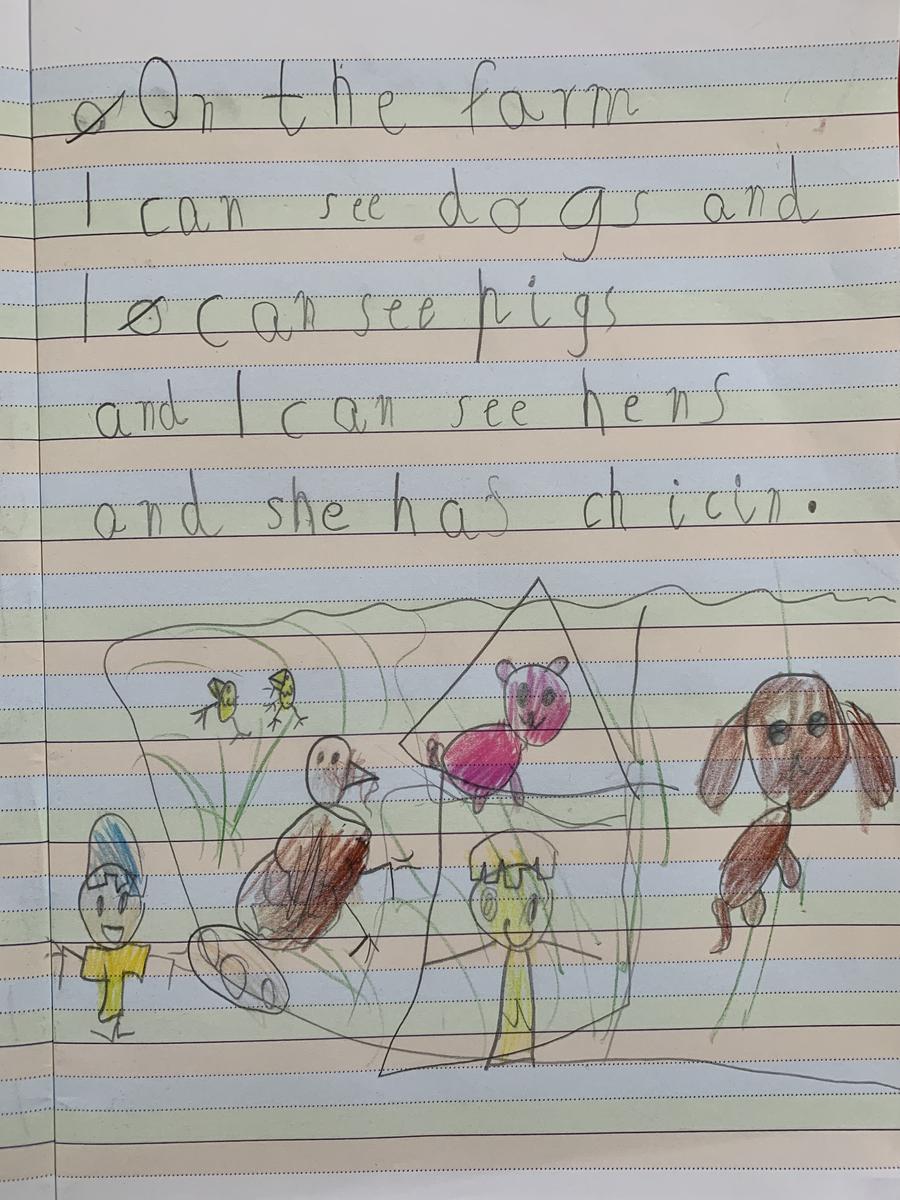 On the farm
I can see dogs and
I can see pigs
and I can see hens
and she has chicin.